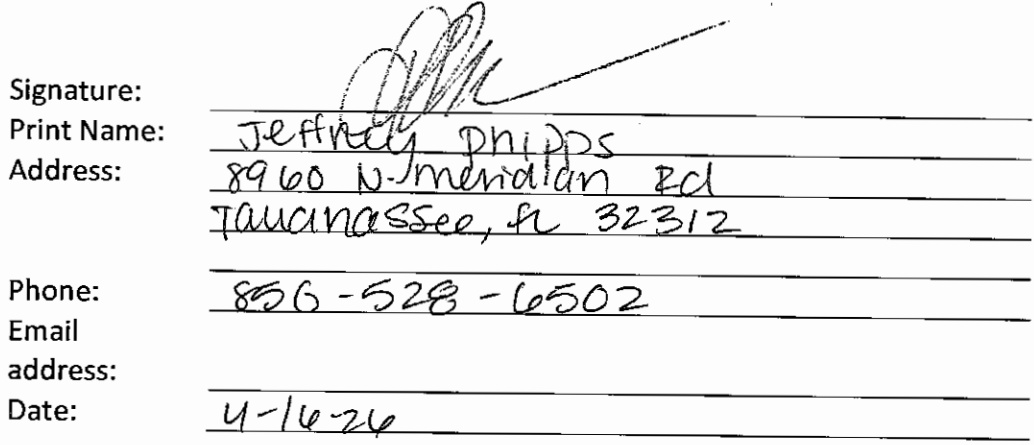 Signature:
Print Name: Jeffrey Phipps
Address: 8960 N. Meridian Rd
Tallahassee, FL 32312
Phone: 850-528-6502
Email
address:
Date: 4-16-26